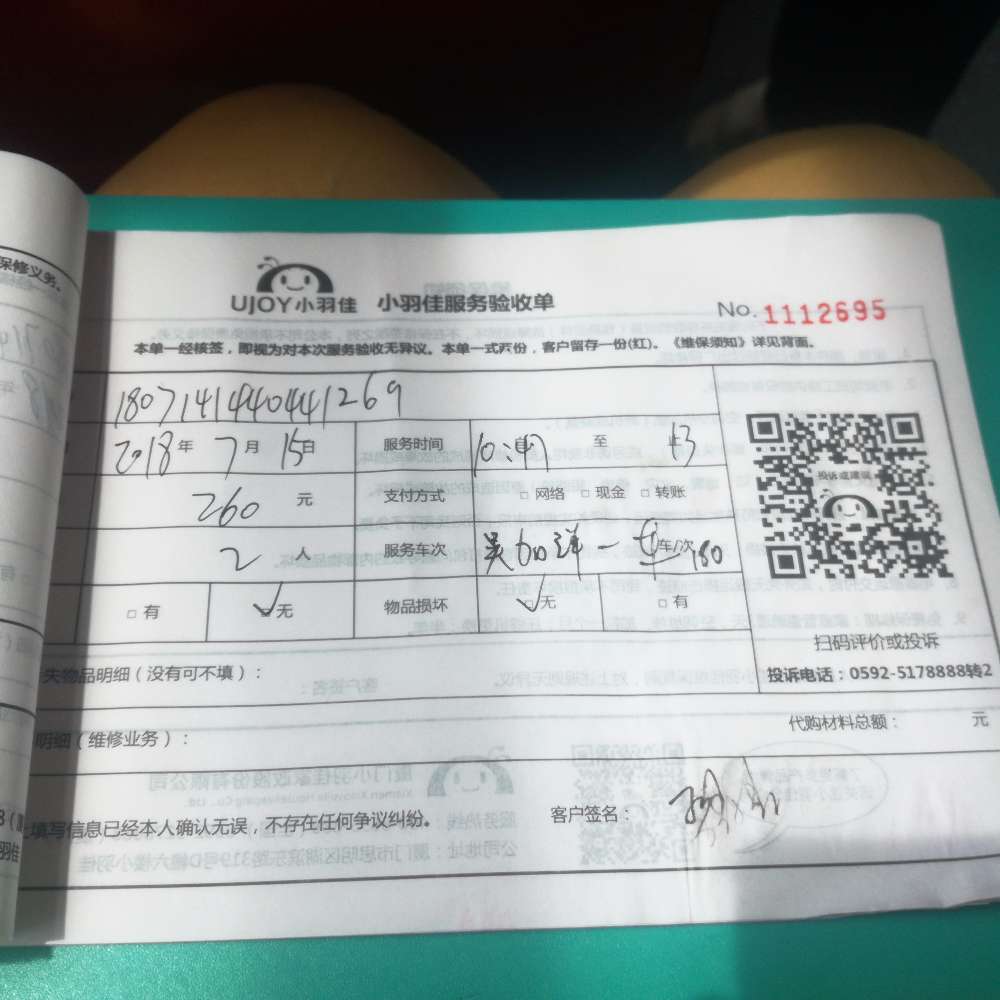 保修义务。
UJOY小羽佳 小羽佳服务验收单
No. 1112695
本单一经核签，即视为对本次服务验收无异议。本单一式两份，客户留存一份(红)。《维保须知》详见背面。
180714144044 1269
2018年 7月 15日 服务时间 至 止
260 元 支付方式 □ 网络 □ 现金 □ 转账
2 人 服务车次 车/次 180
□ 有 ☑ 无 物品损坏 ☑ 无 □ 有
投诉或建议
扫码评价或投诉
投诉电话：0592-5178888转2
失物品明细（没有可不填）：
明细（维修业务）： 代购材料总额： 元
填写信息已经本人确认无误，不存在任何争议纠纷。 客户签名：